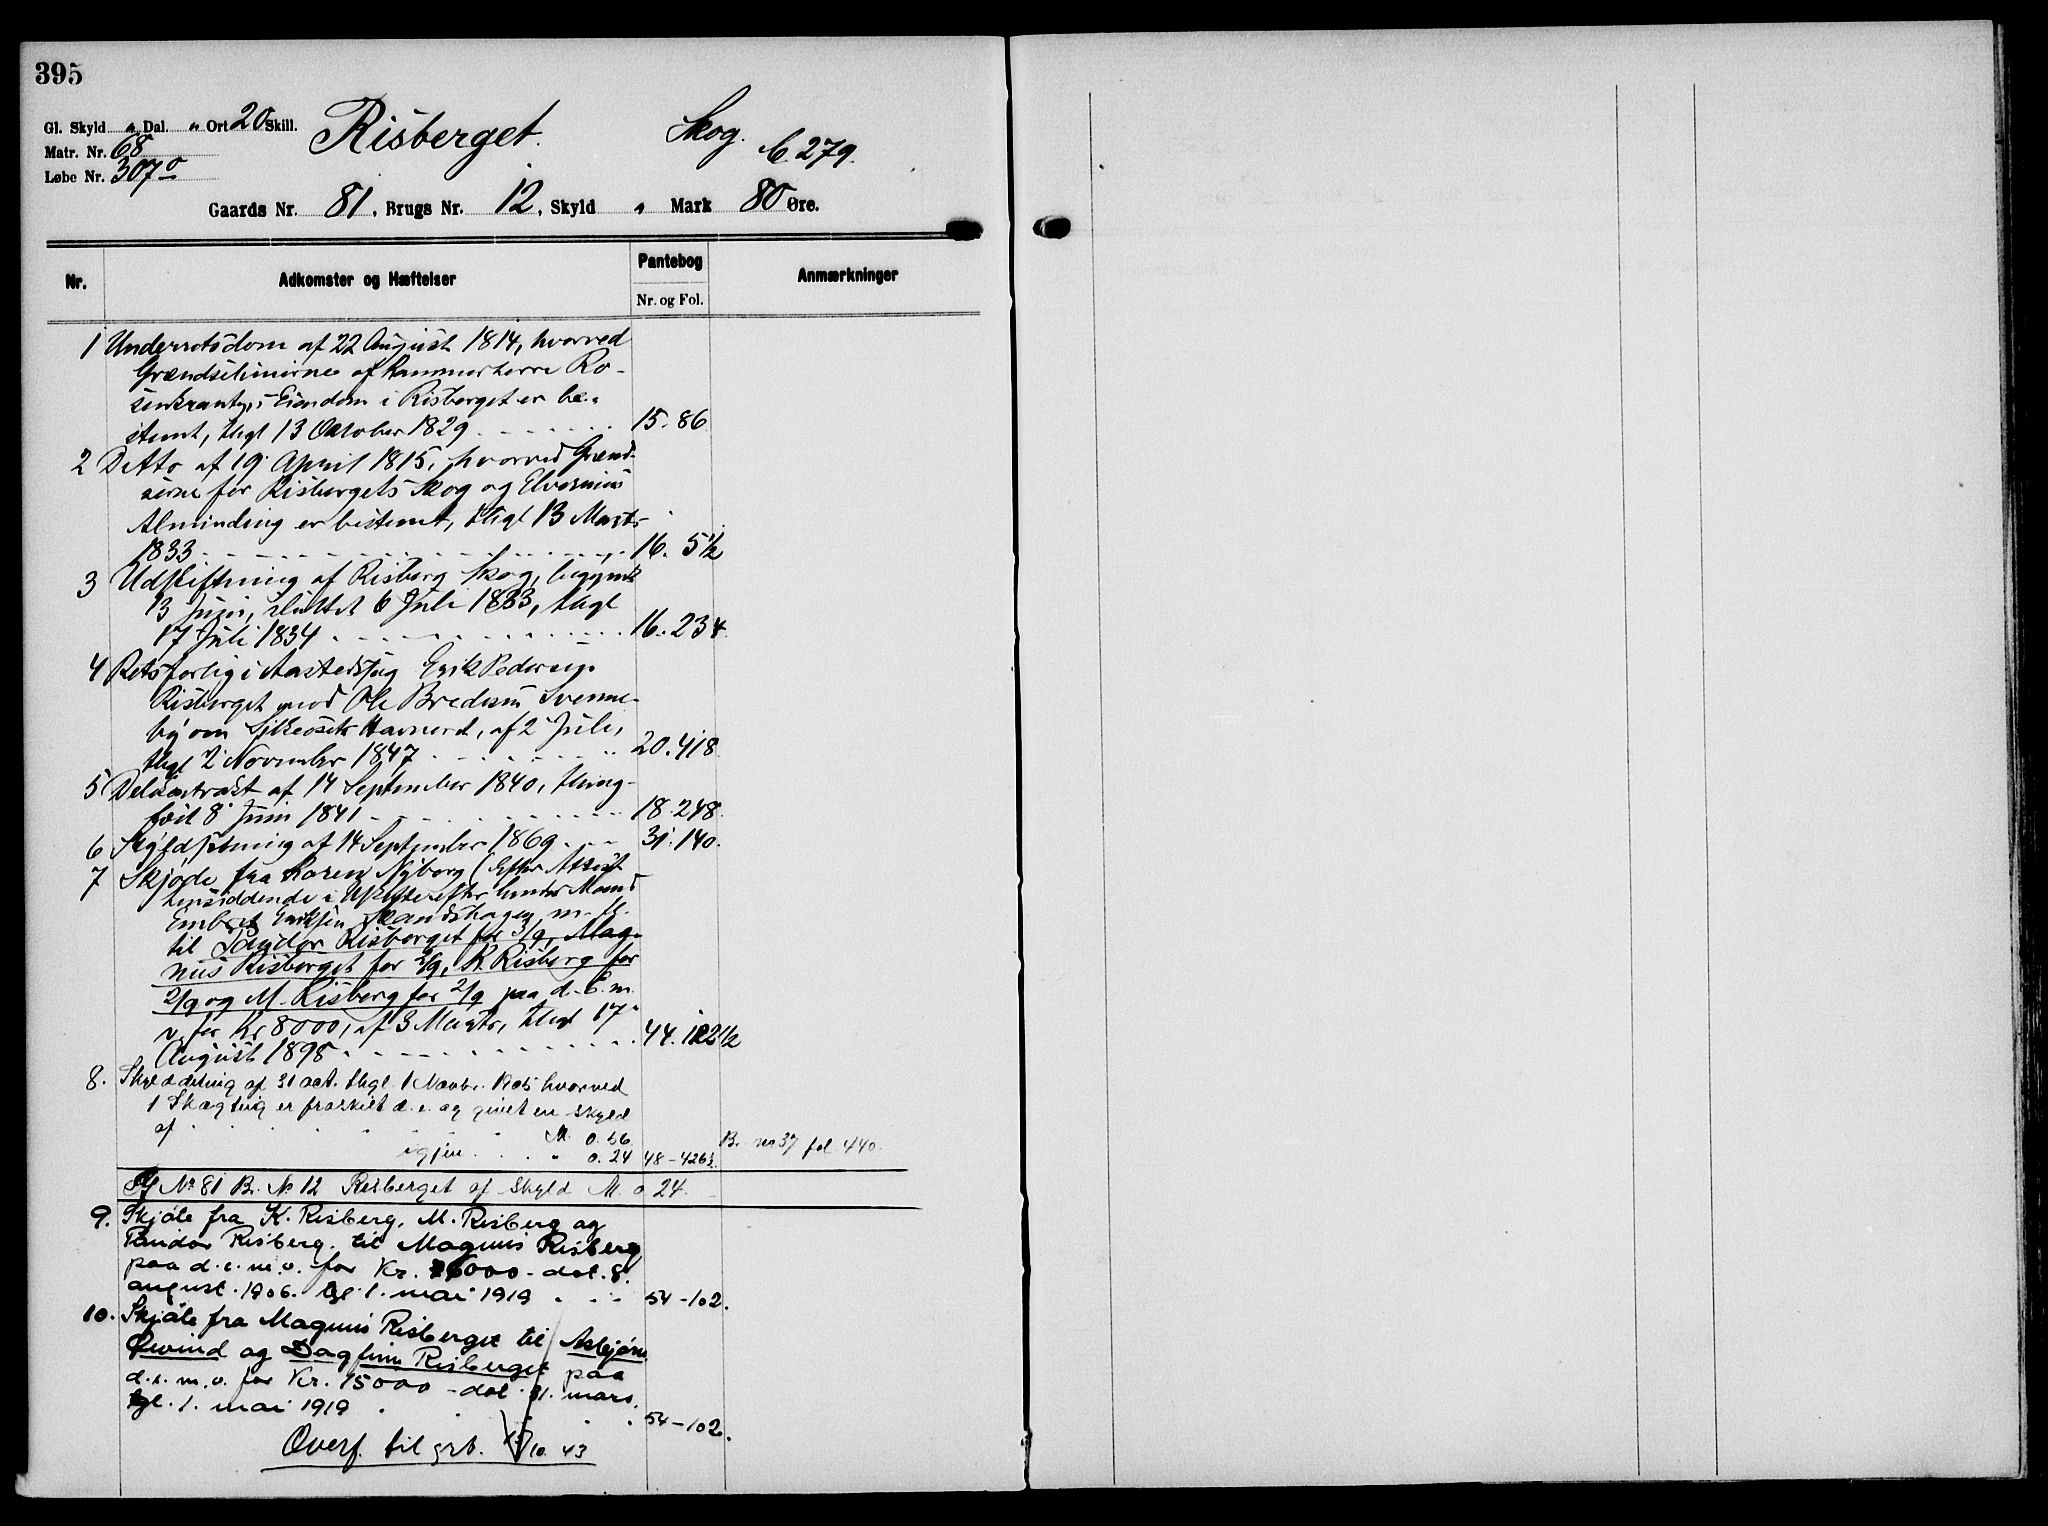 395
Gl. Skyld " Dal. " Ort 20 Skill.
Matr. Nr. 68
Løbe Nr. 307 o
Risberget. Skog. b 279.
Gaards Nr. 81, Brugs Nr. 12, Skyld " Mark 80 Øre.
Nr. Adkomster og Hæftelser Pantebog Anmærkninger
Nr. og Fol.
1 Underretsdom af 22 August 1814, hvorved
Grændselinierne af Kammerherre Ro-
senkrantz, i Eiendom i Risberget er be-
stemt, thgl 13 Oktober 1829 15. 86.
2 Ditto af 19 April 1815, hvorved Grænd-
serne for Risbergets Skog og Elverums
Alminding er bestemt, thgl 13 Marts
1833 16. 5 1/2
3 Udskiftning af Risberg Skog, begyndt
13 Juni, sluttet 6 Juli 1833, thgl
17 Juli 1834 16. 234.
4 Retsforlig i Aastedssag Erik Pedersen
Risberget mod Ole Bredesen Svenne-
by om Havneret, af 2 Juli,
thgl 2 November 1847 20. 418.
5 Delekontrakt af 14 September 1840, thing-
læst 8 Juni 1841 18. 248.
6 Skyldsetning af 14 September 1869 31. 140.
7 Skjøde fra Karen Nyborg (Efter Attest
hensiddende i Uskifte efter hendes Mand
Embret Eriksen Strandshagen m. fl.
til Sandor Risberget for 3/9, Mag-
nus Risberget for 2/9, K. Risberg for
2/9 og M. Risberg for 2/9 paa d. E. m.
v. for Kr 8000, af 3 Marts, thgl 17
August 1898 44. 122 1/2
8. Skylddeling af 31 oct. thgl. 1 Novbr. 1905 hvorved
1 Skogteig er fraskilt d. e. og givet en skyld
af M. 0.56 B. no 37 fol. 440.
igjen " 0.24 48-426 1/2
G No 81 B. No 12 Risberget af skyld M. 0.24.
9. Skjøte fra K. Risberg, M. Risberg og
Risberg. til Magnus Risberg
paa d. e. m. v. for Kr. 6000 - dat. 8.
august. 1906. tgl. 1. mai 1919 54-102.
10. Skjøte fra Magnus Risberget til Asbjørn,
Øivind og Dagfinn Risberget paa
d. e. m. v. for Kr. 15000 - dat. 31. mars.
tgl. 1. mai 1919 54-102.
Overf. til grb. 15/10 43